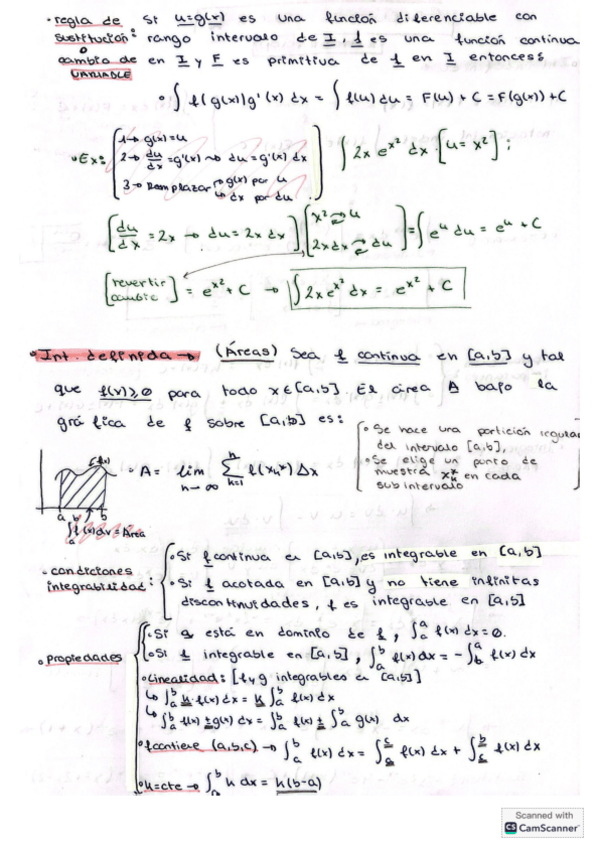 • regla de sustitución: Si u=g(x) es una función diferenciable con
o cambio de VARIABLE rango intervalo de I, f es una función continua
en I y F es primitiva de f en I entonces:
• ∫ f(g(x))g'(x) dx = ∫ f(u) du = F(u) + C = F(g(x)) + C
• Ex: [1→ g(x)=u
2→ du/dx = g'(x) → du = g'(x) dx
3→ Remplazar → g(x) por u
→ dx por du] ∫ 2x e^{x²} dx · [u = x²];
[du/dx = 2x → du = 2x dx] [x² ⇄ u
2x dx ⇄ du] = ∫ e^u du = e^u + C
[revertir cambio] = e^{x²} + C → ∫ 2x e^{x²} dx = e^{x²} + C
• Int. definida → (Áreas) Sea f continua en [a,b] y tal
que f(x) ≥ 0 para todo x∈[a,b]. El área A bajo la
gráfica de f sobre [a,b] es:
• Se hace una partición regular
del intervalo [a,b],
• Se elige un punto de
muestra x*_k en cada
subintervalo
f(x)
• A = lim n→∞ Σ_{k=1}^{n} f(x_k*) Δx
a b
∫_a^b f(x) dx = Área
• condiciones integrabilidad:
• Si f continua en [a,b], es integrable en [a,b]
• Si f acotada en [a,b] y no tiene infinitas
discontinuidades, f es integrable en [a,b]
• Propiedades
• Si a está en dominio de f, ∫_a^a f(x) dx = 0.
• Si f integrable en [a,b], ∫_a^b f(x) dx = - ∫_b^a f(x) dx
• Linealidad: [f y g integrables en [a,b]]
↳ ∫_a^b k·f(x) dx = k ∫_a^b f(x) dx
↳ ∫_a^b f(x) ± g(x) dx = ∫_a^b f(x) ± ∫_a^b g(x) dx
• f contiene (a,b,c) → ∫_a^b f(x) dx = ∫_a^c f(x) dx + ∫_c^b f(x) dx
• k=cte → ∫_a^b k dx = k(b-a)
Scanned with
CS CamScanner